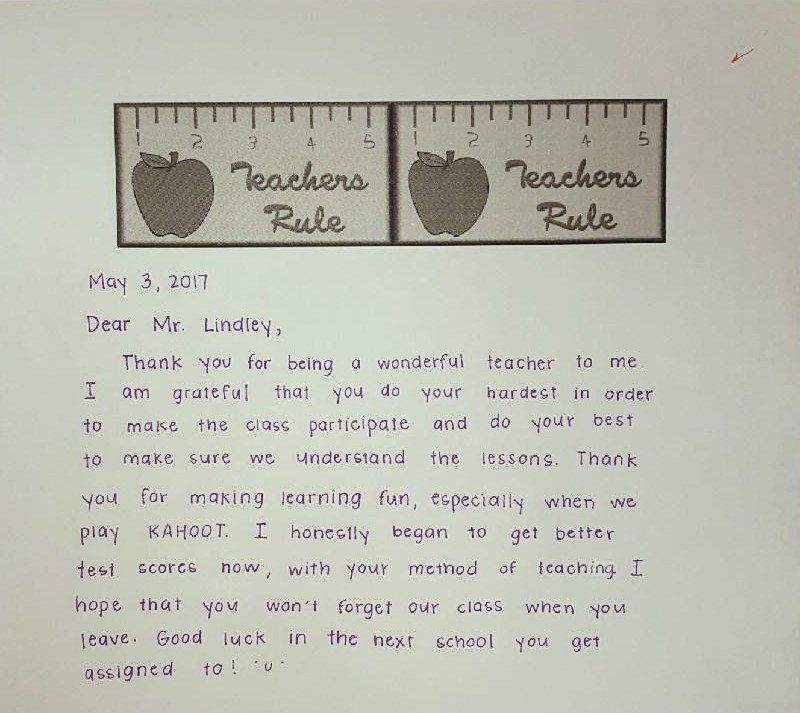 1 2 3 4 5 1 2 3 4 5
Teachers Teachers
Rule Rule
May 3, 2017
Dear Mr. Lindley,
Thank you for being a wonderful teacher to me.
I am grateful that you do your hardest in order
to make the class participate and do your best
to make sure we understand the lessons. Thank
you for making learning fun, especially when we
play KAHOOT. I honestly began to get better
test scores now, with your method of teaching I
hope that you won't forget our class when you
leave. Good luck in the next school you get
assigned to! 'u'